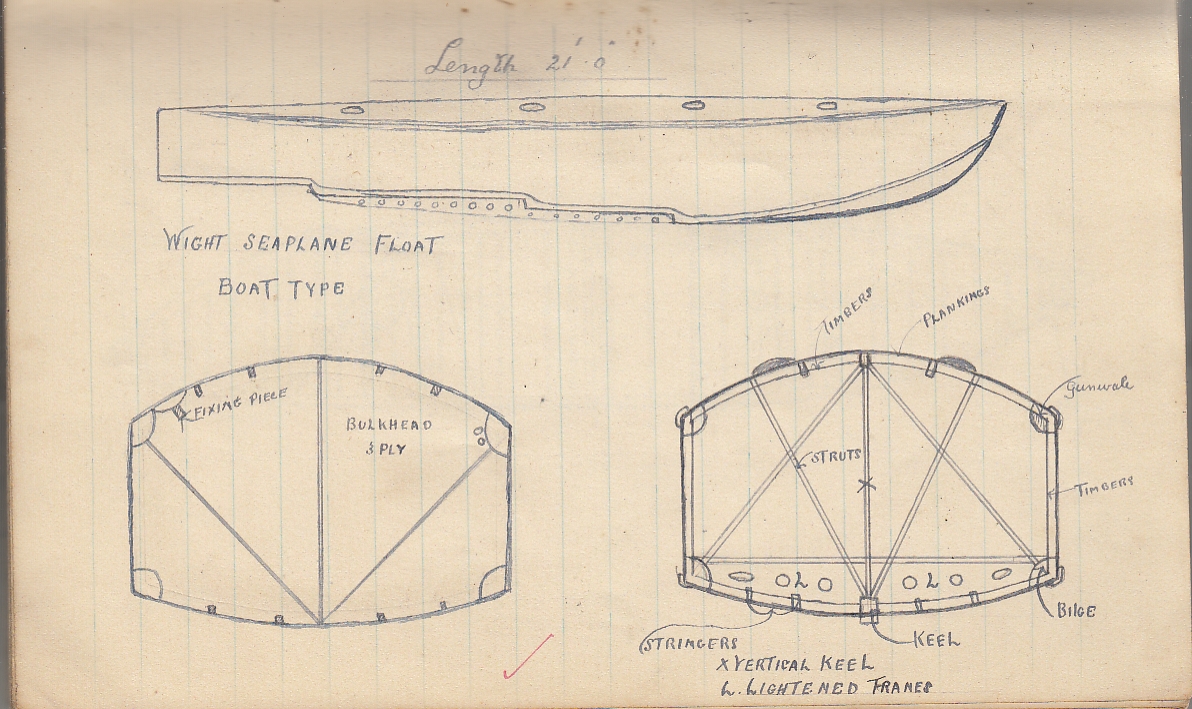 Length 21' 0"
WIGHT SEAPLANE FLOAT
BOAT TYPE
TIMBERS
PLANKINGS
FIXING PIECE
BULKHEAD
3 PLY
Gunwale
STRUTS
X
TIMBERS
L
L
BILGE
STRINGERS
KEEL
X VERTICAL KEEL
L. LIGHTENED FRAMES